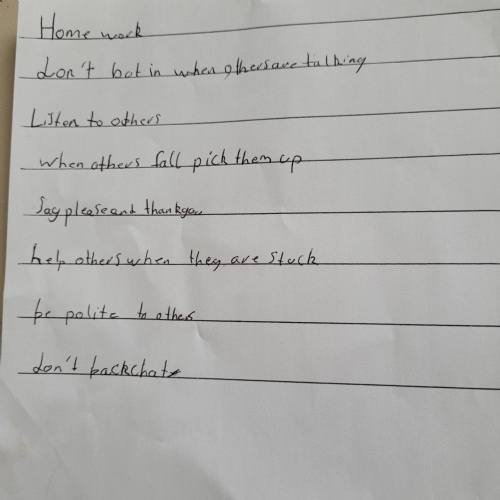 Home work
don't but in when others are talking
Listen to others
when others fall pick them up
Say please and thankyou
help others when they are stuck
be polite to others
don't backchat